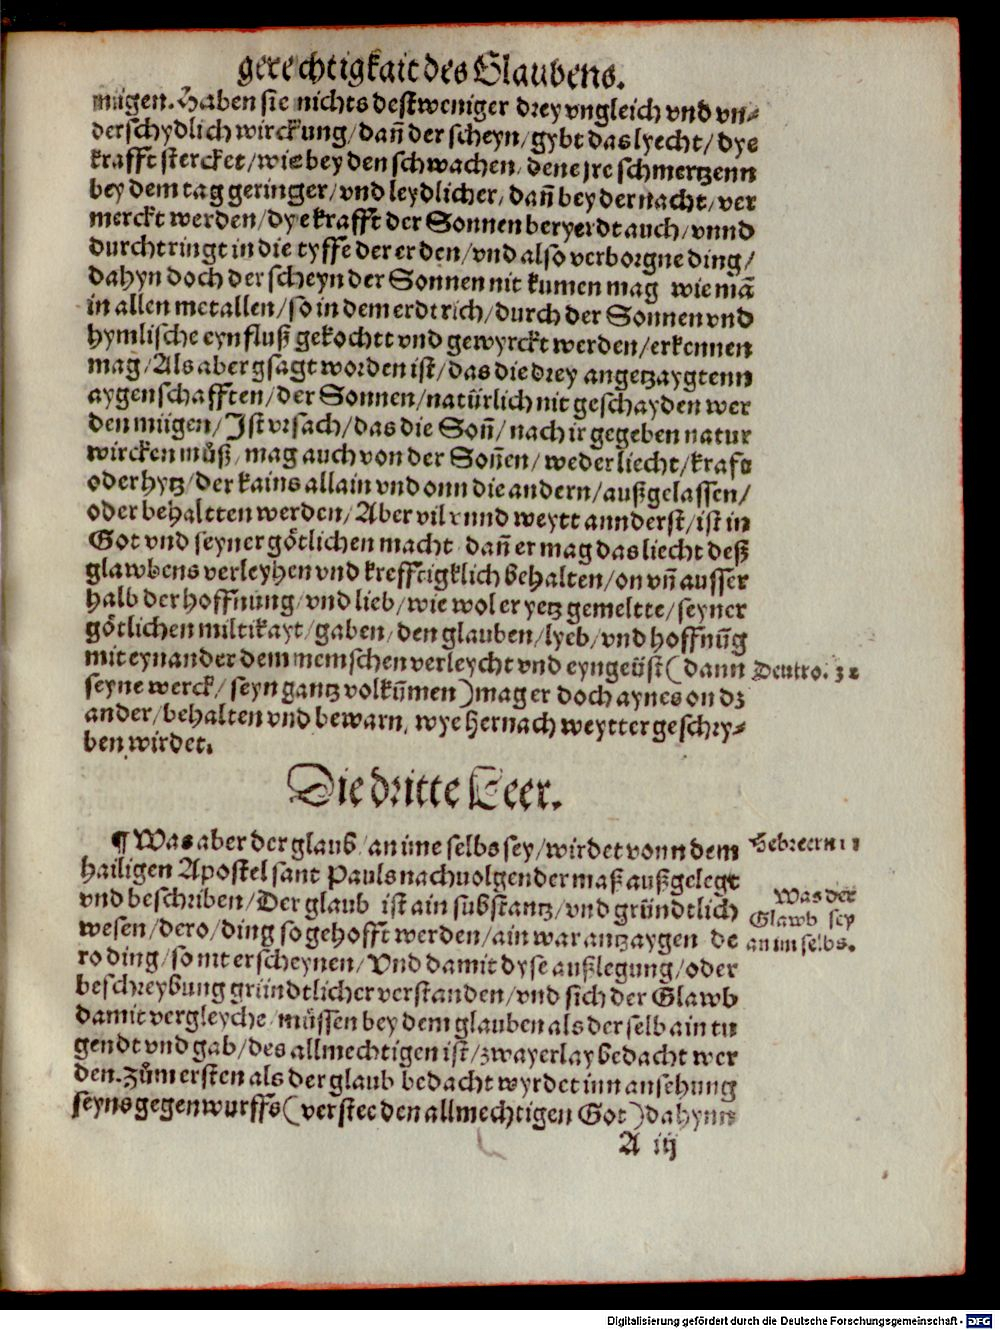 gerechtigkait des Glaubens.
mügen. Haben sie nichts destweniger drey vngleich vnd vn⸗
derschydlich wirckung/ dañ der scheyn/ gybt das lyecht/ dye
krafft stercket/ wie bey den schwachen/ dene jre schmertzenn
bey dem tag geringer/ vnd leydlicher/ dañ bey der nacht/ ver
merckt werden/ dye krafft der Sonnen beryerdt auch/ vnnd
durchtringt in die tyffe der erden/ vnd also verborgne ding/
dahyn doch der scheyn der Sonnen nit kumen mag wie mã
in allen metallen/ so in dem erdtrich/ durch der Sonnen vnd
hymlische eynfluß gekochtt vnd gewyrckt werden/ erkennen
mag/ Als aber gsagt worden ist/ das die drey angetzaygtenn
aygenschafften/ der Sonnen/ natürlich nit geschayden wer
den mügen/ Ist vrsach/ das die Soñ/ nach ir gegeben natur
wircken můß/ mag auch von der Soñen/ weder liecht/ kraft
oder hytz/ der kains allain vnd onn die andern/ außgelassen/
oder behaltten werden/ Aber vil vnnd weytt annderst/ ist in
Got vnd seyner götlichen macht dañ er mag das liecht deß
glawbens verleyhen vnd krefftigklich behalten/ on vñ ausser
halb der hoffnung/ vnd lieb/ wie wol er yetz gemeltte/ seyner
götlichen miltikayt/ gaben/ den glauben/ lyeb/ vnd hoffnũg
mit eynander dem memschen verleycht vnd eyngeüst ( dann
Deutro. 32
seyne werck/ seyn gantz volkũmen ) mag er doch aynes on dz
ander/ behalten vnd bewarn, wye hernach weytter geschry⸗
ben wirdet.
Die dritte Leer.
¶ Was aber der glaub/ an ime selbs sey/ wirdet vonn dem
Hebreern 11
hailigen Apostel sant Pauls nachuolgender maß außgelegt
vnd beschriben/ Der glaub ist ain substantz/ vnd gründtlich
Was der
Glawb sey
an im selbs.
wesen/ dero/ ding so gehofft werden/ ain war antzaygen de
ro ding/ so nit erscheynen/ Vnd damit dyse außlegung/ oder
beschreybung gründtlicher verstanden/ vnd sich der Glawb
damit vergleyche/ müssen bey dem glauben als der selb ain tu
gendt vnd gab/ des allmechtigen ist/ zwayerlay bedacht wer
den. Zům ersten als der glaub bedacht wyrdet inn ansehung
seyns gegenwurffs ( verstee den allmechtigen Got ) dahynn
A iij
Digitalisierung gefördert durch die Deutsche Forschungsgemeinschaft - DFG